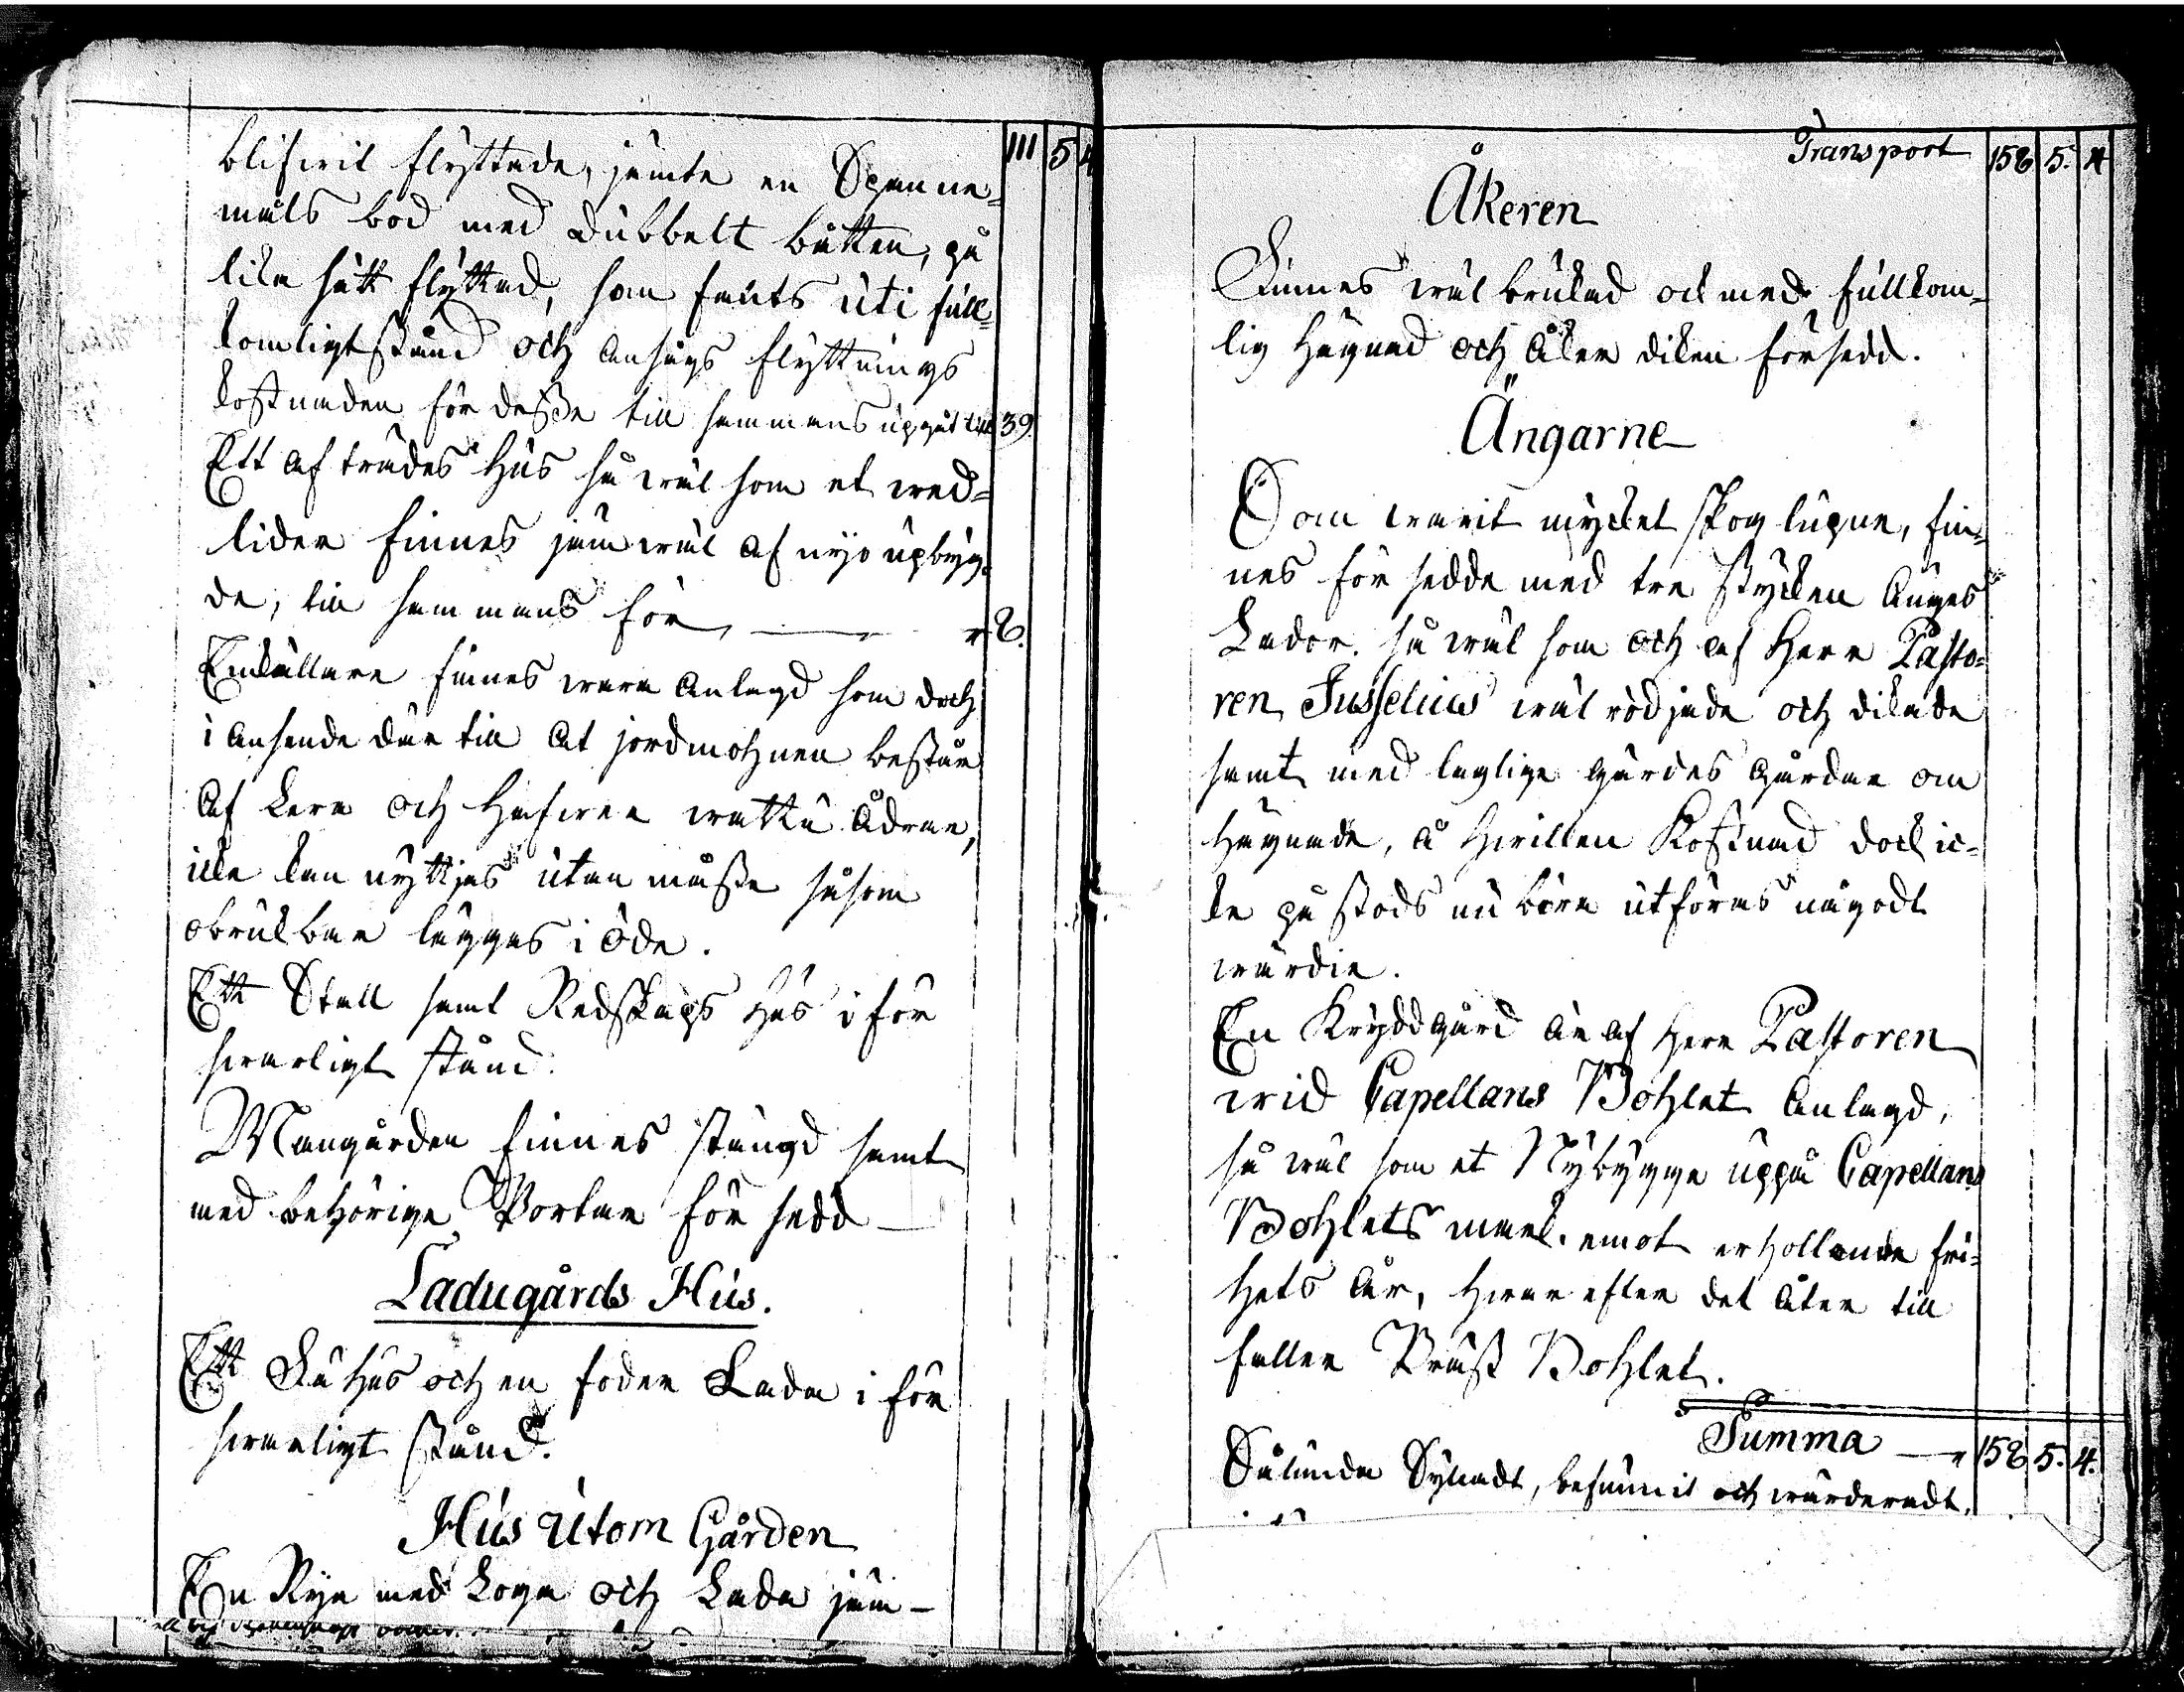 111 5 4
blifwit flyttade, jämte en Spanne=
måls bod med dubbelt båtten, på
lika sätt flyttad, som fants uti full=
komligt stånd och ansågs flyttnings
kostnaden för desse till sammans upgåt till 39.
Ett aftrades Hus så wäl som et wed=
lider finnes jämwäl af nyo upbyg=
de, till sammans för — " 8.
En källare finnes wara anlagd som doch
i anseende där till at jordmohnen består
af Lera och Hafwer wattu Ådror,
icke kan nyttjas utan måste såsom
obrukbar lägges i öde.
Ett Stall samt Redskaps Hus i för
swarligt stånd.
Mangården finnes stängd samt
med behörige Portar för sedd —
Ladugårds Hus.
Ett Fä Hus och en foder Lada i för
swarligt stånd.
Hus utom Gården
En Rya med Loga och Lada jäm-
Transport 158 5. 4
Åkeren
Finnes wäl brukad och med fullkom=
lig Hägnad och Åker diken försedd.
Ängarne
Som warit mycket skog lupne, fin=
nes för sedde med tre stycken Ängs
Lador. så wäl som och af Herr Pasto=
ren Jusselius wäl rödjade och dikade
samt med laglige gärdes gårdar om
Hägnade, å Hwilken Kostnad dock ic=
ke påstods nu böra utföras någodt
wärdie.
En Kryddgård är af Herr Pastoren
wid Capellans Bohlet anlagd,
så wäl som et Nybygge uppå Capellans
Bohlets mark. emot erhollande fri=
hets år, Hwar efter det åter till
faller Präst Bohlet.
Summa — " 158 5. 4.
Sålunda Synadt, besunnit och wärderadt,